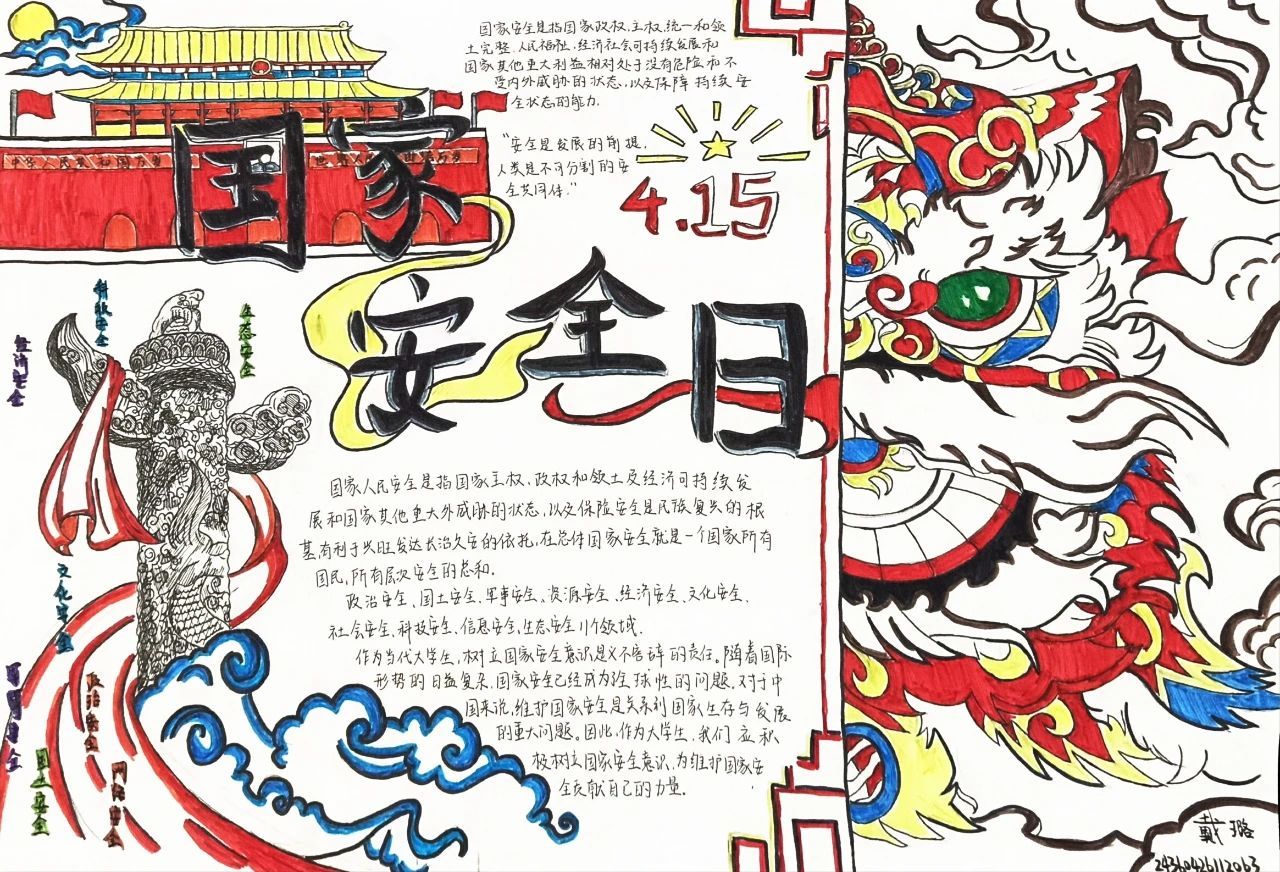 国家安全是指国家政权、主权、统一和领
土完整、人民福祉、经济社会可持续发展和
国家其他重大利益相对处于没有危险和不
受内外威胁的状态,以及保障持续安
全状态的能力.
"安全是发展的前提,
人类是不可分割的安
全共同体."
4.15
中华人民共和国万岁
国家
安全日
科技安全
生态安全
经济安全
文化安全
政治安全
国土安全
网络安全
国家人民安全是指国家主权,政权和领土及经济可持续发
展和国家其他重大外威胁的状态,以及保险安全是民族复兴的根
基有利于兴旺发达长治久安的依托,在总体国家安全就是一个国家所有
国民,所有层次安全的总和.
政治安全、国土安全、军事安全、资源安全、经济安全、文化安全、
社会安全、科技安全、信息安全、生态安全11个领域.
作为当代大学生,树立国家安全意识是义不容辞的责任。随着国际
形势的日益复杂,国家安全已经成为全球性的问题.对于中
国来说,维护国家安全是关系到国家生存与发展
的重大问题。因此,作为大学生,我们应积
极树立国家安全意识,为维护国家安
全贡献自己的力量.
戴璐
24360426112063